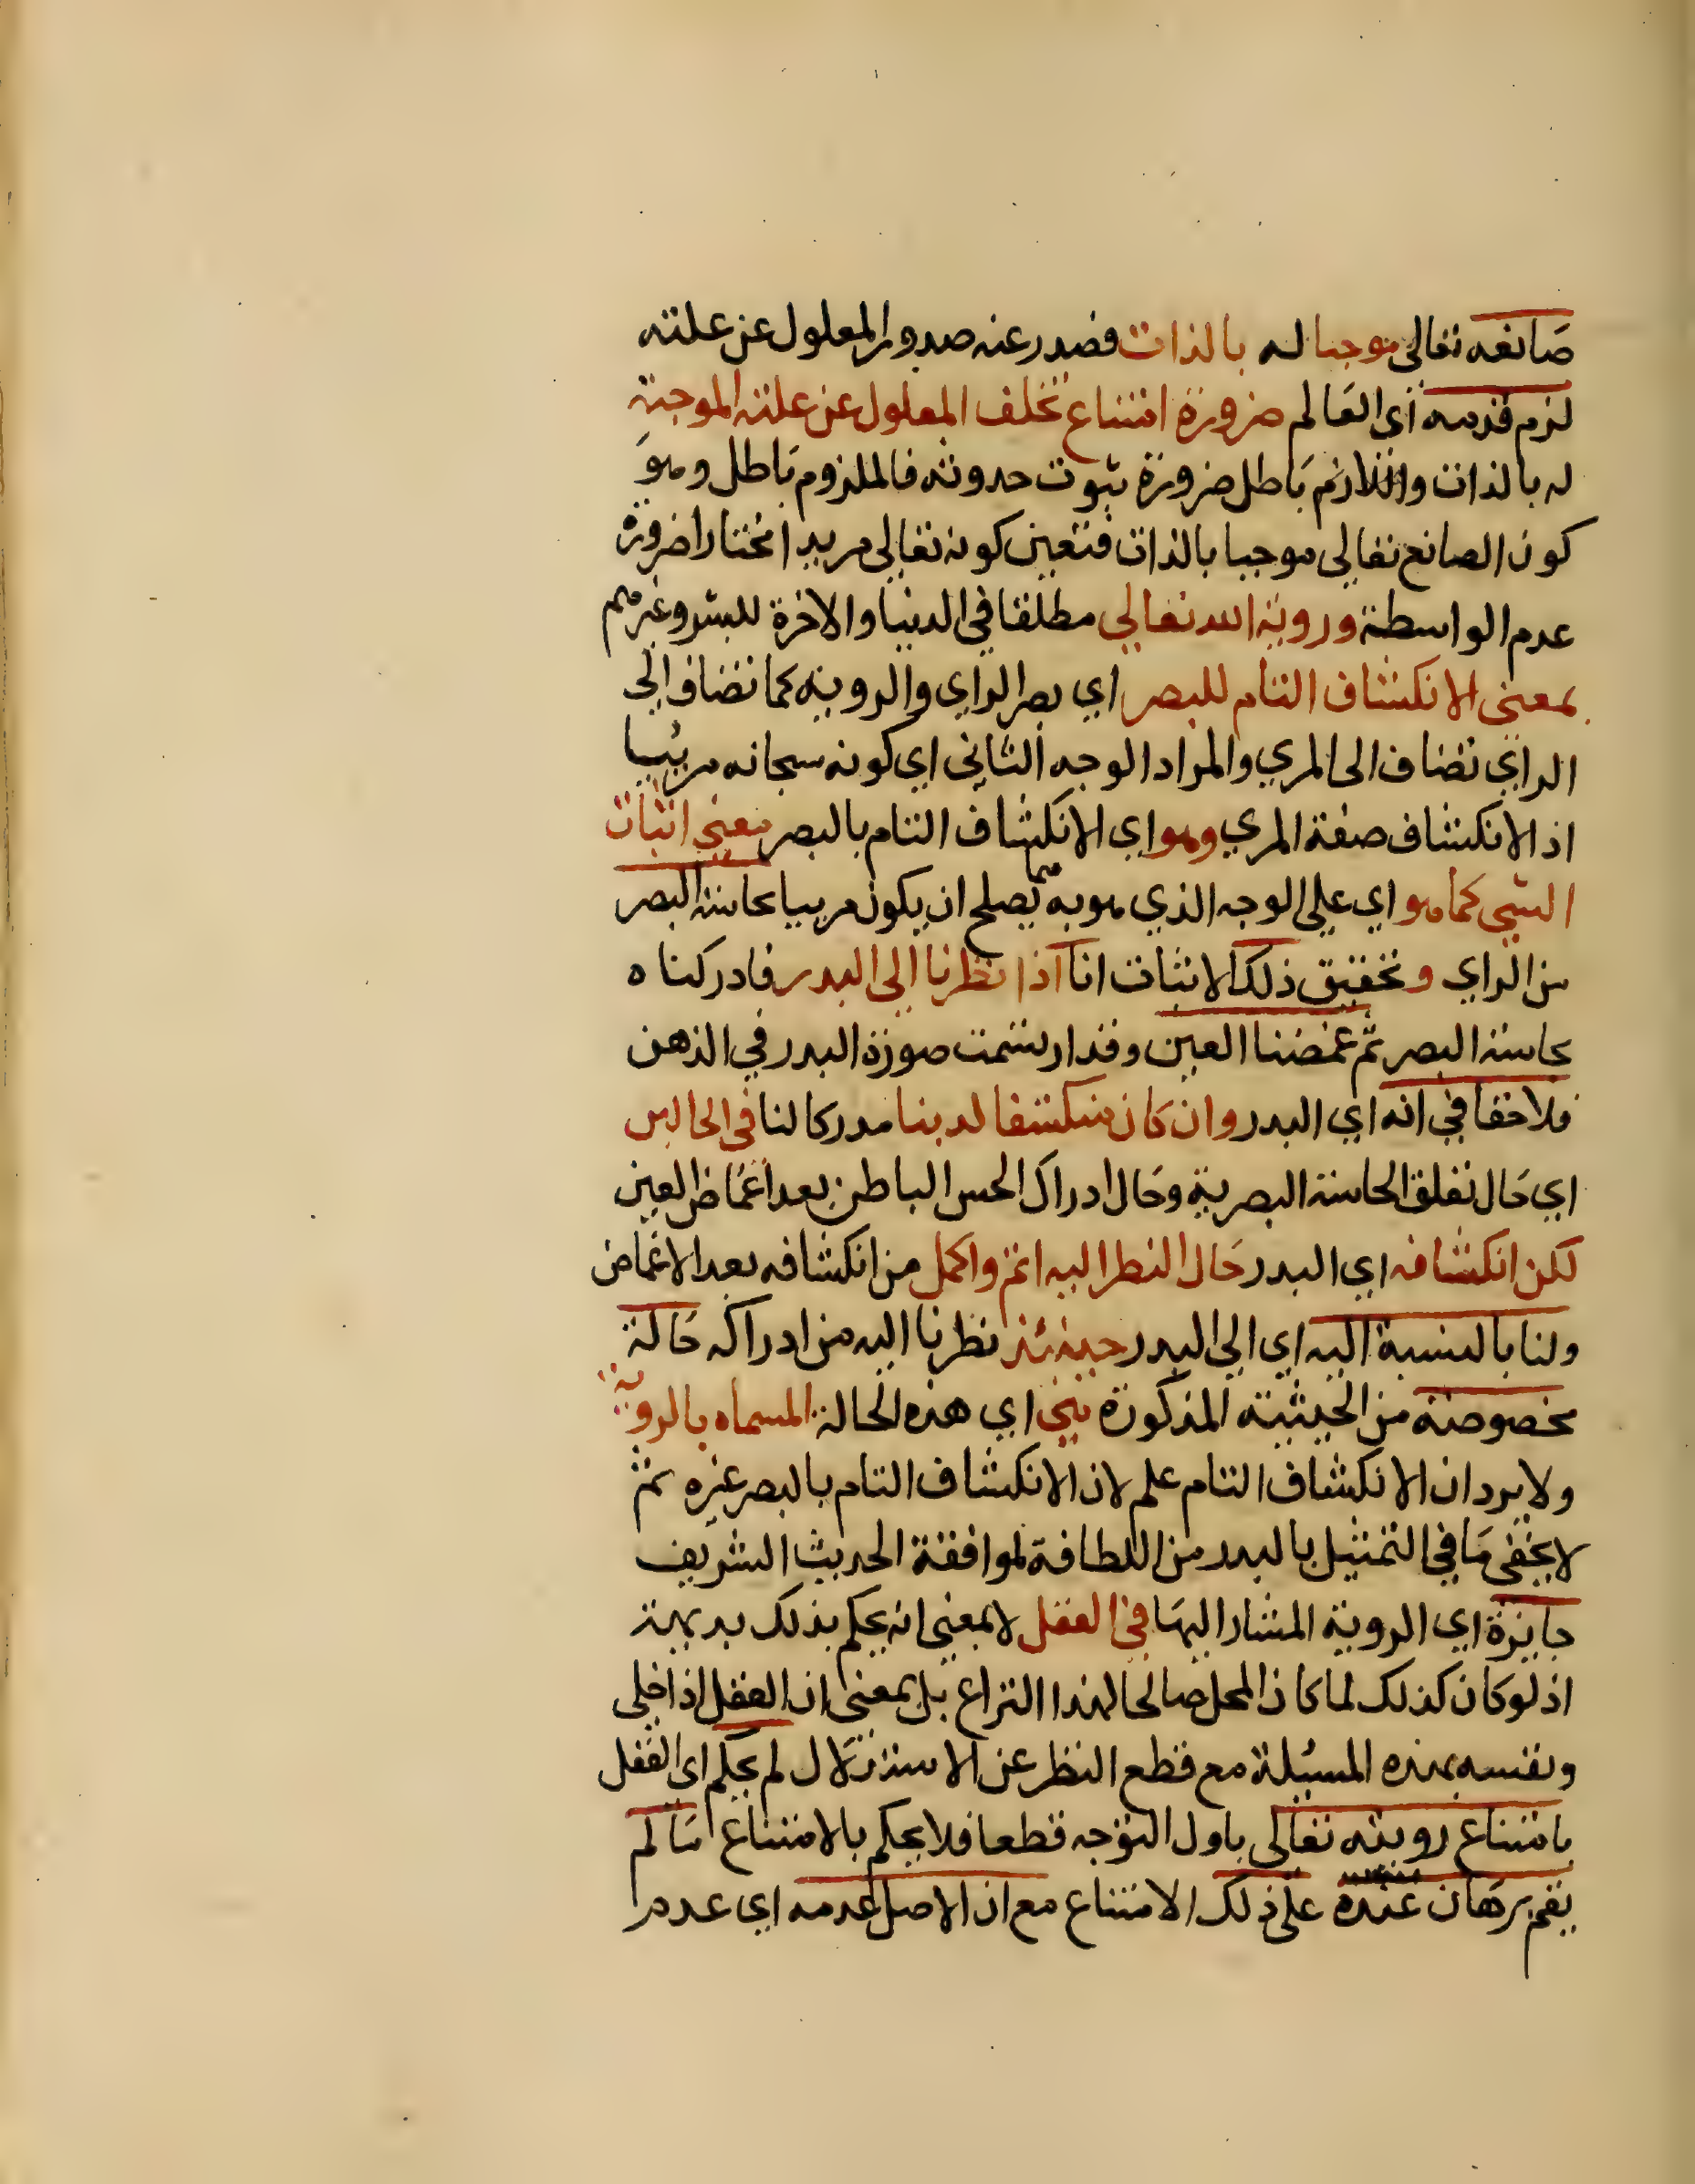 صانعه تعالى موجبا له بالذات فصدر عنه صدور المعلول عن علته
لزم قدمه اي العالم ضرورة امتناع تخلف المعلول عن علته الموجبة
له بالذات واللازم باطل ضرورة ثبوت حدوثه فالملزوم باطل وهو
كون الصانع تعالى موجبا بالذات فتعين كونه تعالى مريدا مختارا ضرورة
عدم الواسطة وروية الله تعالي مطلقا في الدنيا والاخرة للبشر وغيرهم
بمعني الانكشاف التام للبصر اي بصر الراي والروية كما تضاف الى
الراي تضاف الى المري والمراد الوجه الثاني اي كونه سبحانه مرئيا
اذ الانكشاف صفة المري وهو اي الانكشاف التام بالبصر معني اثبات
الشي كما هو اي على الوجه الذي هو به يصلح ان يكون مرييا بحاسة البصر
من الراي وتحقيق ذلك الاثبات انا اذا نظرنا الى البدر فادركناه
بحاسة البصر ثم غمضنا العين وقد ارتسمت صورة البدر في الذهن
فلا خفا في انه اي البدر وان كان منكشفا لدينا مدركا لنا في الحالين
اي حال تعلق الحاسة البصرية وحال ادراك الحس الباطن بعد اغماض العين
لكن انكشافه اي البدر حال النظر اليه اتم واكمل من انكشافه بعد الاغماض
ولنا بالنسبة اليه اي الي البدر حينئذ نظرنا اليه من ادراكه حالة
مخصوصة من الحيثية المذكورة هي اي هذه الحالة المسماه بالروية
ولا يرد ان الانكشاف التام علم لان الانكشاف التام بالبصر غيره ثم
لا يخفى ما في التمثيل بالبدر من اللطافة لموافقة الحديث الشريف
جايزة اي الروية المشار اليها في العقل لا بمعني انه يحكم بذلك بديهة
اذ لو كان كذلك لما كان المحل صالحا لهذا النزاع بل بمعنى ان العقل اذا خلى
ونفسه بهذه المسئلة مع قطع النظر عن الاستدلال لم يحكم اي العقل
بامتناع رويته تعالى باول التوجه قطعا فلا يحكم بالامتناع ما لم
يقم برهان عنده على ذلك الامتناع مع ان الاصل عدمه اي عدم